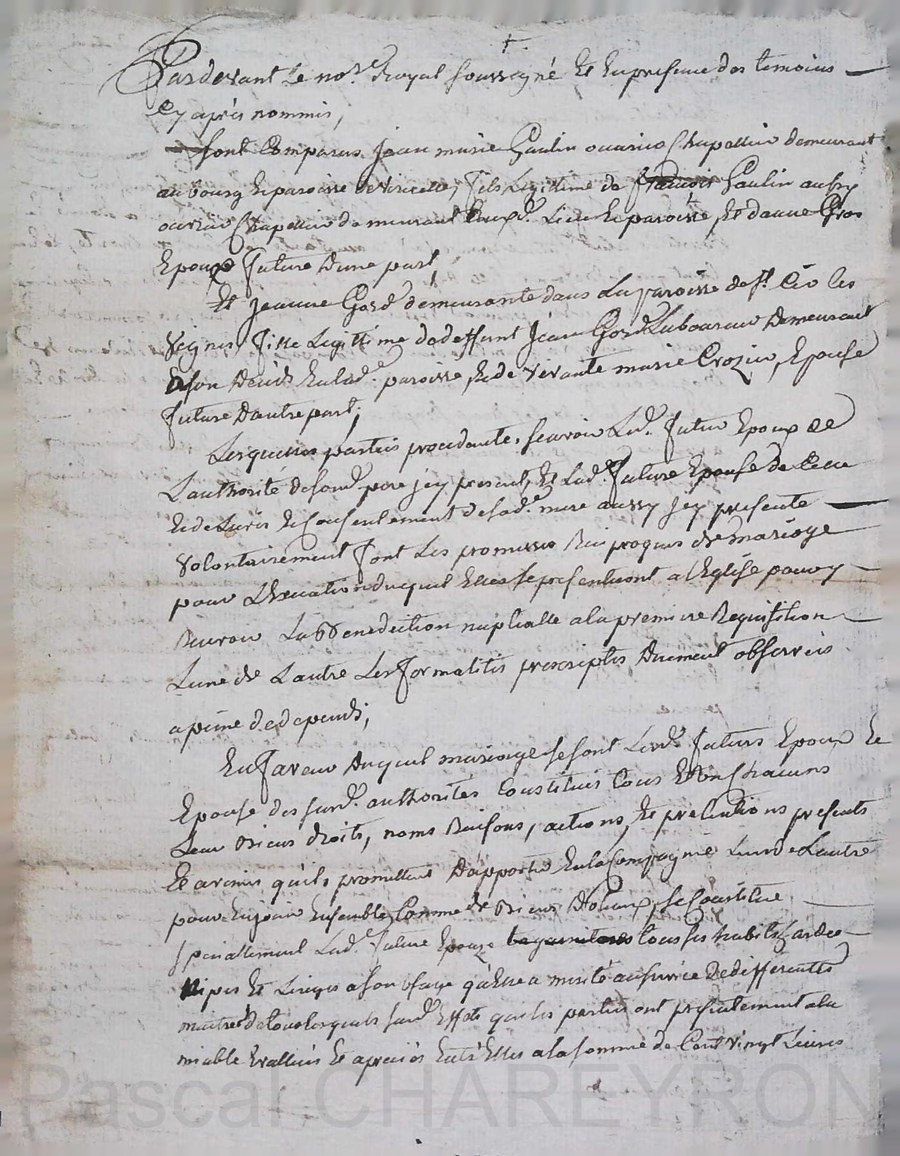 +
Pardevant Le no.re Royal soussigné Et Enpresence des temoins
Cy aprés nommés,
sont Comparus Jean marie Gaulin ouvrier Chapellier demeurant
au bourg Et paroisse de Viricelle, fils Legittime de françois Gaulin aussy
ouvrier Chapellier demeurant Lieu Et paroisse, Et danne Gros
Epoux future dune part,
Et Jeanne demeurante dans La paroisse de st. les
fille Legittime de deffunt Jean Laboureur Demeurant
a son Deceds Enlad.e paroisse, Et de vivante marie Crozier, Epouse
future Dautre part;
Lesquelles parties procedantes, scavoir Led.t futur Epoux de
Lauthorité de sond.t pere jcy present, Et Lad.e future Epouse de Celle
Et de Lavis Et Consentement de sad.e mere aussy jcy presente
volontairement font Les promesses Reciproques de mariage
pour LExecution duquel Elles se presenteront a LEglise pour y
Recevoir La Benediction nuptialle a la premiere Requisition
Lune de Lautre Les formalités prescriptes Duement observées
a peine de depends;
En faveur Duquel mariage se sont Lesd.ts futurs Epoux Et
Epouse des susd.t authorités Constitués tous Et Un Chacuns
Leur Biens droits, noms Raisons, actions, Et pretentions presents
Et avenir quils promettent Dapporter En la Compagnie Lun de Lautre
pour En jouir Ensemble Comme de Biens Dotaux, se Constitue
speciallement Lad.e future Epouze tous ses habits hardes
nipes Et Linges a son Usage quElle a merité au service De differents
maitres de tous lesquels susd.t Effets que les parties ont presentement a la
miable Evallués Et apreciés Entre Elles a la somme de Cent vingt Livres
Pascal CHAREYRON